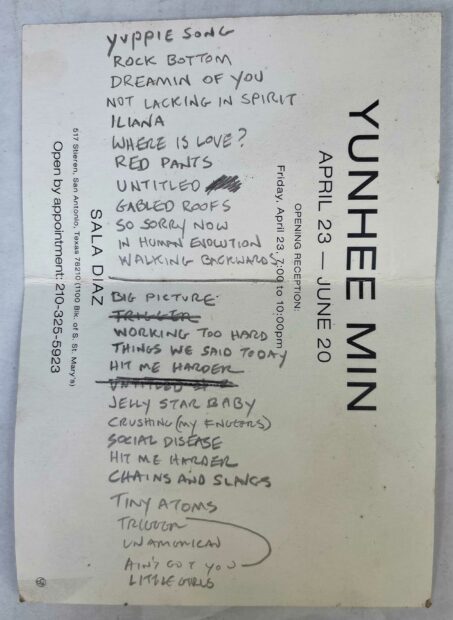 YUPPIE SONG
ROCK BOTTOM
DREAMIN OF YOU
NOT LACKING IN SPIRIT
ILIANA
WHERE IS LOVE?
RED PANTS
UNTITLED
GABLED ROOFS
SO SORRY NOW
IN HUMAN EVOLUTION
WALKING BACKWARDS
BIG PICTURE
TRIGGER
WORKING TOO HARD
THINGS WE SAID TODAY
HIT ME HARDER
UNTITLED
JELLY STAR BABY
CRUSHING (MY FINGERS)
SOCIAL DISEASE
HIT ME HARDER
CHAINS AND SLANGS
TINY ATOMS
TRIGGER
UNAMERICAN
AIN'T GOT YOU
LITTLE GIRLS
YUNHEE MIN
APRIL 23 — JUNE 20
OPENING RECEPTION:
Friday, April 23, 7:00 to 10:00pm
SALA DIAZ
517 Stieren, San Antonio, Texas 78210 (1100 Blk. of S. St. Mary's)
Open by appointment: 210-325-5923